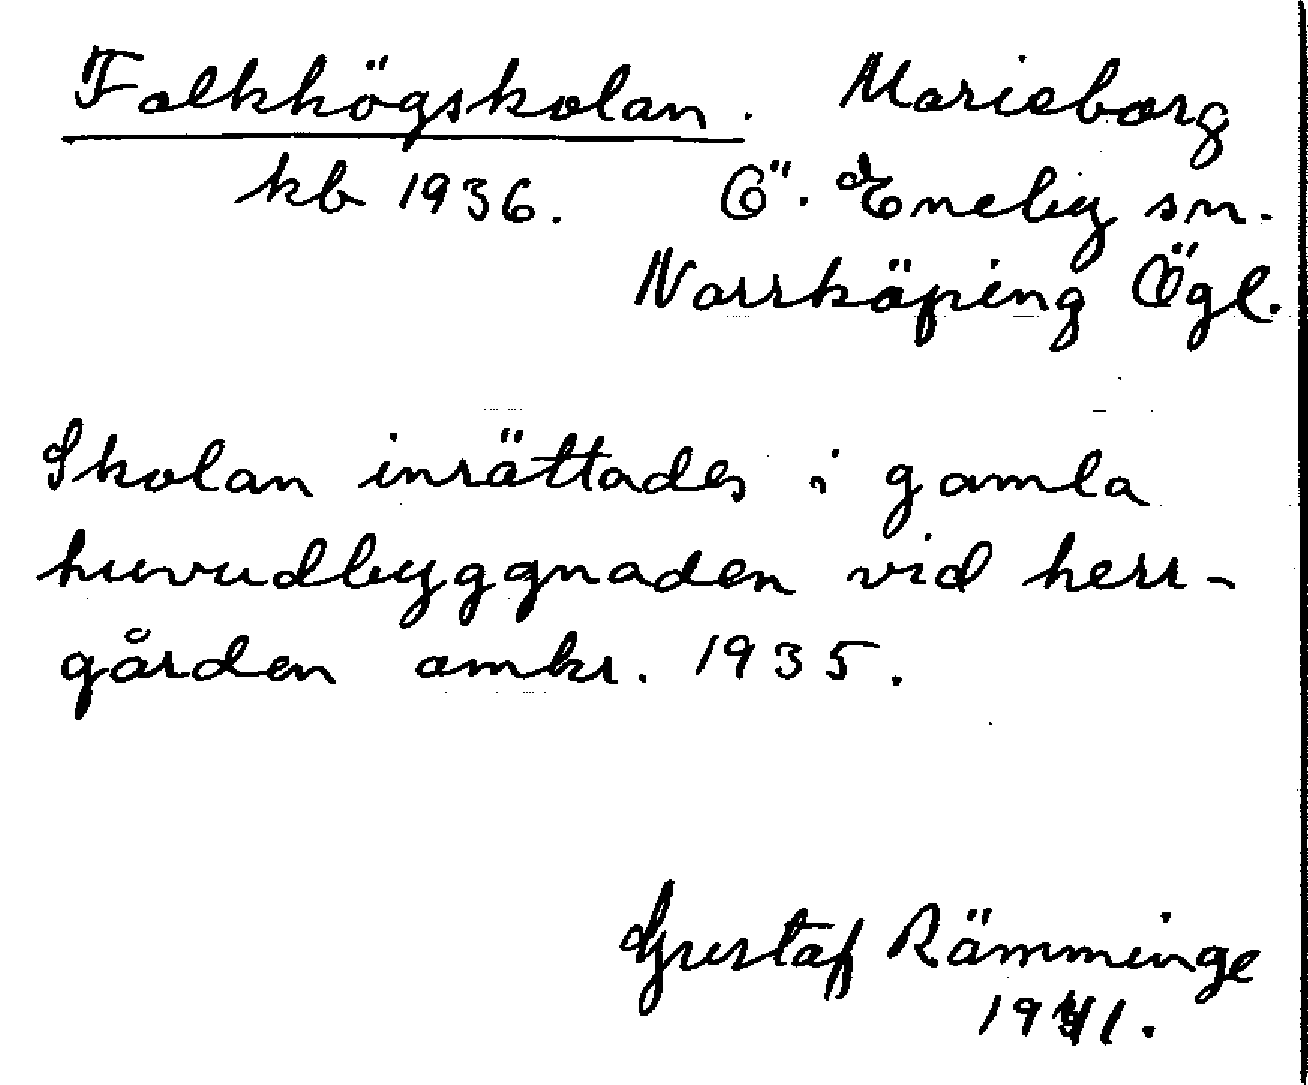 Folkhögskolan. Marieborg
kb 1936. Ö. Eneby sn.
Norrköping Ögl.
Skolan inrättades i gamla
huvudbyggnaden vid herr-
gården omkr. 1935.
Gustaf Rämminge
1941.